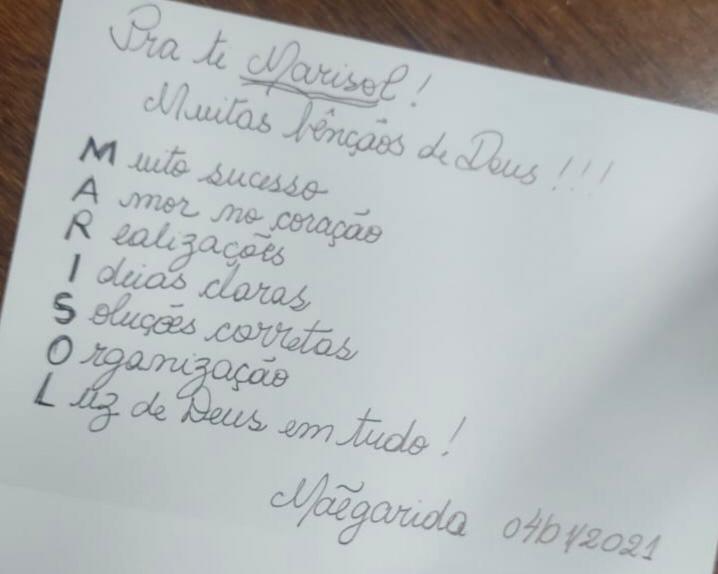 Pra ti Marisol!
Muitas bênçãos de Deus!!!
Muito sucesso
Amor no coração
Realizações
Ideias claras
Soluções corretas
Organização
Luz de Deus em tudo!
Mãegarida